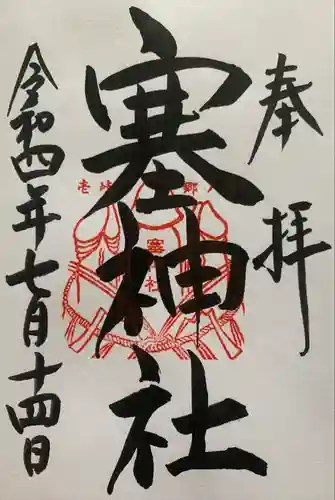 奉拝
塞神社
壱岐 郷
塞
社
令和四年七月十四日